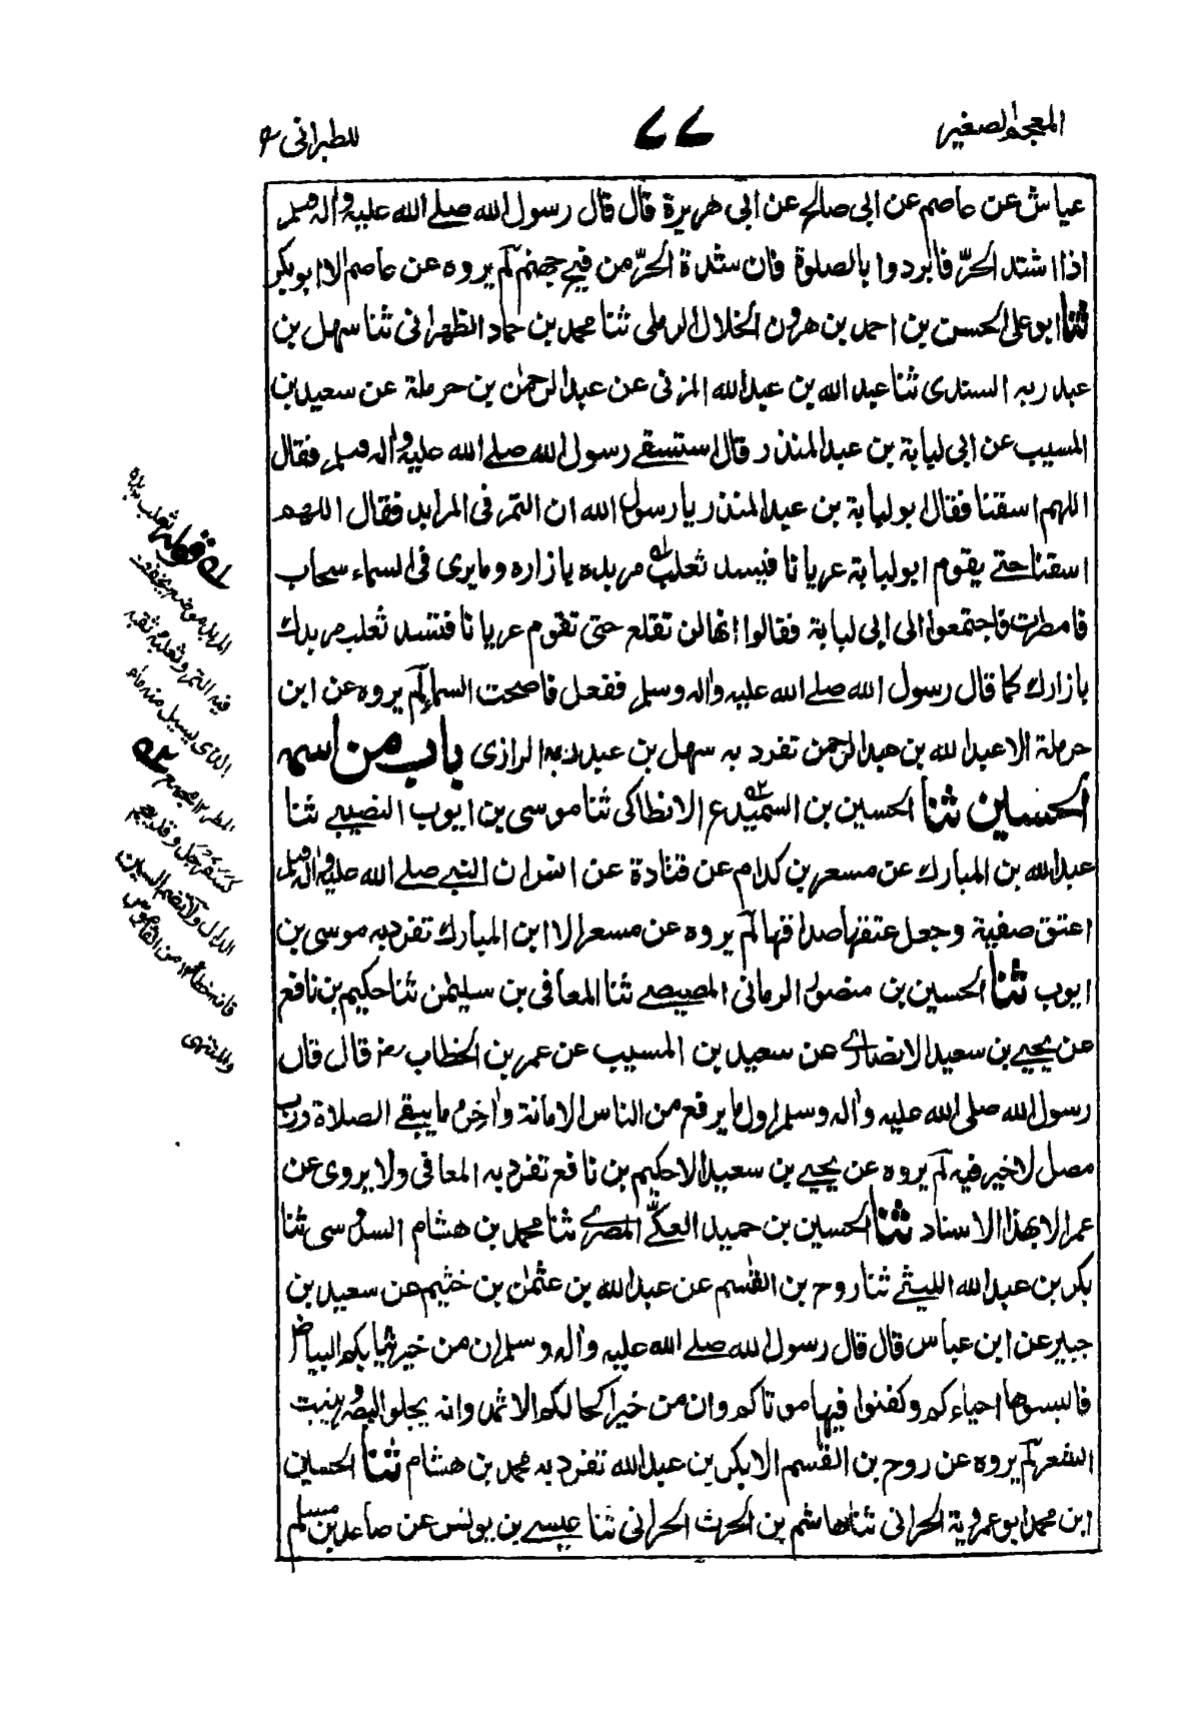 المعجم الصغير
۷۷
للطبرانى
عياش عن عاصم عن ابى صالح عن ابى هريرة قال قال رسول الله صلے الله عليه واٰله وسلم
اذا اشتد الحرّ فابردوا بالصلوة فان شدة الحرّ من فيح جهنم لم يروه عن عاصم الا ابو بكر
ثنا ابو على الحسن بن احمد بن هرون الخلال الرملى ثنا محمد بن حماد الظهرانى ثنا سهل بن
عبد ربه السندى ثنا عبد الله بن عبد الله المزنى عن عبد الرحمٰن بن حرملة عن سعيد بن
المسيب عن ابى لبابة بن عبد المنذر قال استسقے رسول الله صلے الله عليه واٰله وسلم فقال
اللهم اسقنا فقال ابو لبابة بن عبد المنذر يا رسول الله ان التمر فى المرابد فقال اللهم
اسقنا حتے يقوم ابو لبابة عريانا فيسد ثعلب مربده بازاره وما يرى فى السماء سحاب
فامطرت فاجتمعوا الى ابى لبابة فقالوا انها لن تقلع حتى تقوم عريانا فتسد ثعلب مربدك
بازارك كما قال رسول الله صلے الله عليه واٰله وسلم ففعل فاصحت السماء لم يروه عن ابن
حرملة الا عبد الله بن عبد الرحمن تفرد به سهل بن عبد ربه الرازى باب من اسمه
الحسين ثنا الحسين بن السميدع الانطاكى ثنا موسى بن ايوب النصيبے ثنا
عبد الله بن المبارك عن مسعر بن كدام عن قتادة عن انس ان النبے صلے الله عليه واٰله وسلم
اعتق صفية وجعل عتقها صداقها لم يروه عن مسعر الا ابن المبارك تفرد به موسى بن
ايوب ثنا الحسين بن منصور الرمانى المصيصے ثنا المعافى بن سليمٰن ثنا حكيم بن نافع
عن يحيے بن سعيد الانصارے عن سعيد بن المسيب عن عمر بن الخطاب رض قال قال
رسول الله صلى الله عليه واٰله وسلم اول ما يرفع من الناس الامانة واٰخر ما يبقے الصلاة ورب
مصل لا خير فيه لم يروه عن يحيے بن سعيد الا حكيم بن نافع تفرد به المعافى ولا يروى عن
عمر الا بهذا الاسناد ثنا الحسين بن حميد العكّے المصرے ثنا محمد بن هشام السدوسى ثنا
بكر بن عبد الله الليثے ثنا روح بن القٰسم عن عبد الله بن عثمٰن بن خثيم عن سعيد بن
جبير عن ابن عباس قال قال رسول الله صلے الله عليه واٰله وسلم ان من خير ثيابكم البياض
فالبسوها احياءكم وكفنوا فيها موتاكم وان من خير اكحالكم الاثمد وانه يجلو البصر وينبت
الشعر لم يروه عن روح بن القٰسم الا بكر بن عبد الله تفرد به محمد بن هشام ثنا الحسين
ابن محمد ابو عروبة الحرانى ثنا هاشم بن الحرث الحرانى ثنا عيسے بن يونس عن صاعد بن مسلم
له قوله ثعلب مربده
المربد موضع يجفف
فيه التمر وثعلبه ثقبه
الذى يسيل منه ماء
المطر ۱۲ مجمع ۲ه
كسفرجل وقد يعجم
الدال ولا تضم السين
فانه خطأ ۱۲ من القاموس
والمنتهى